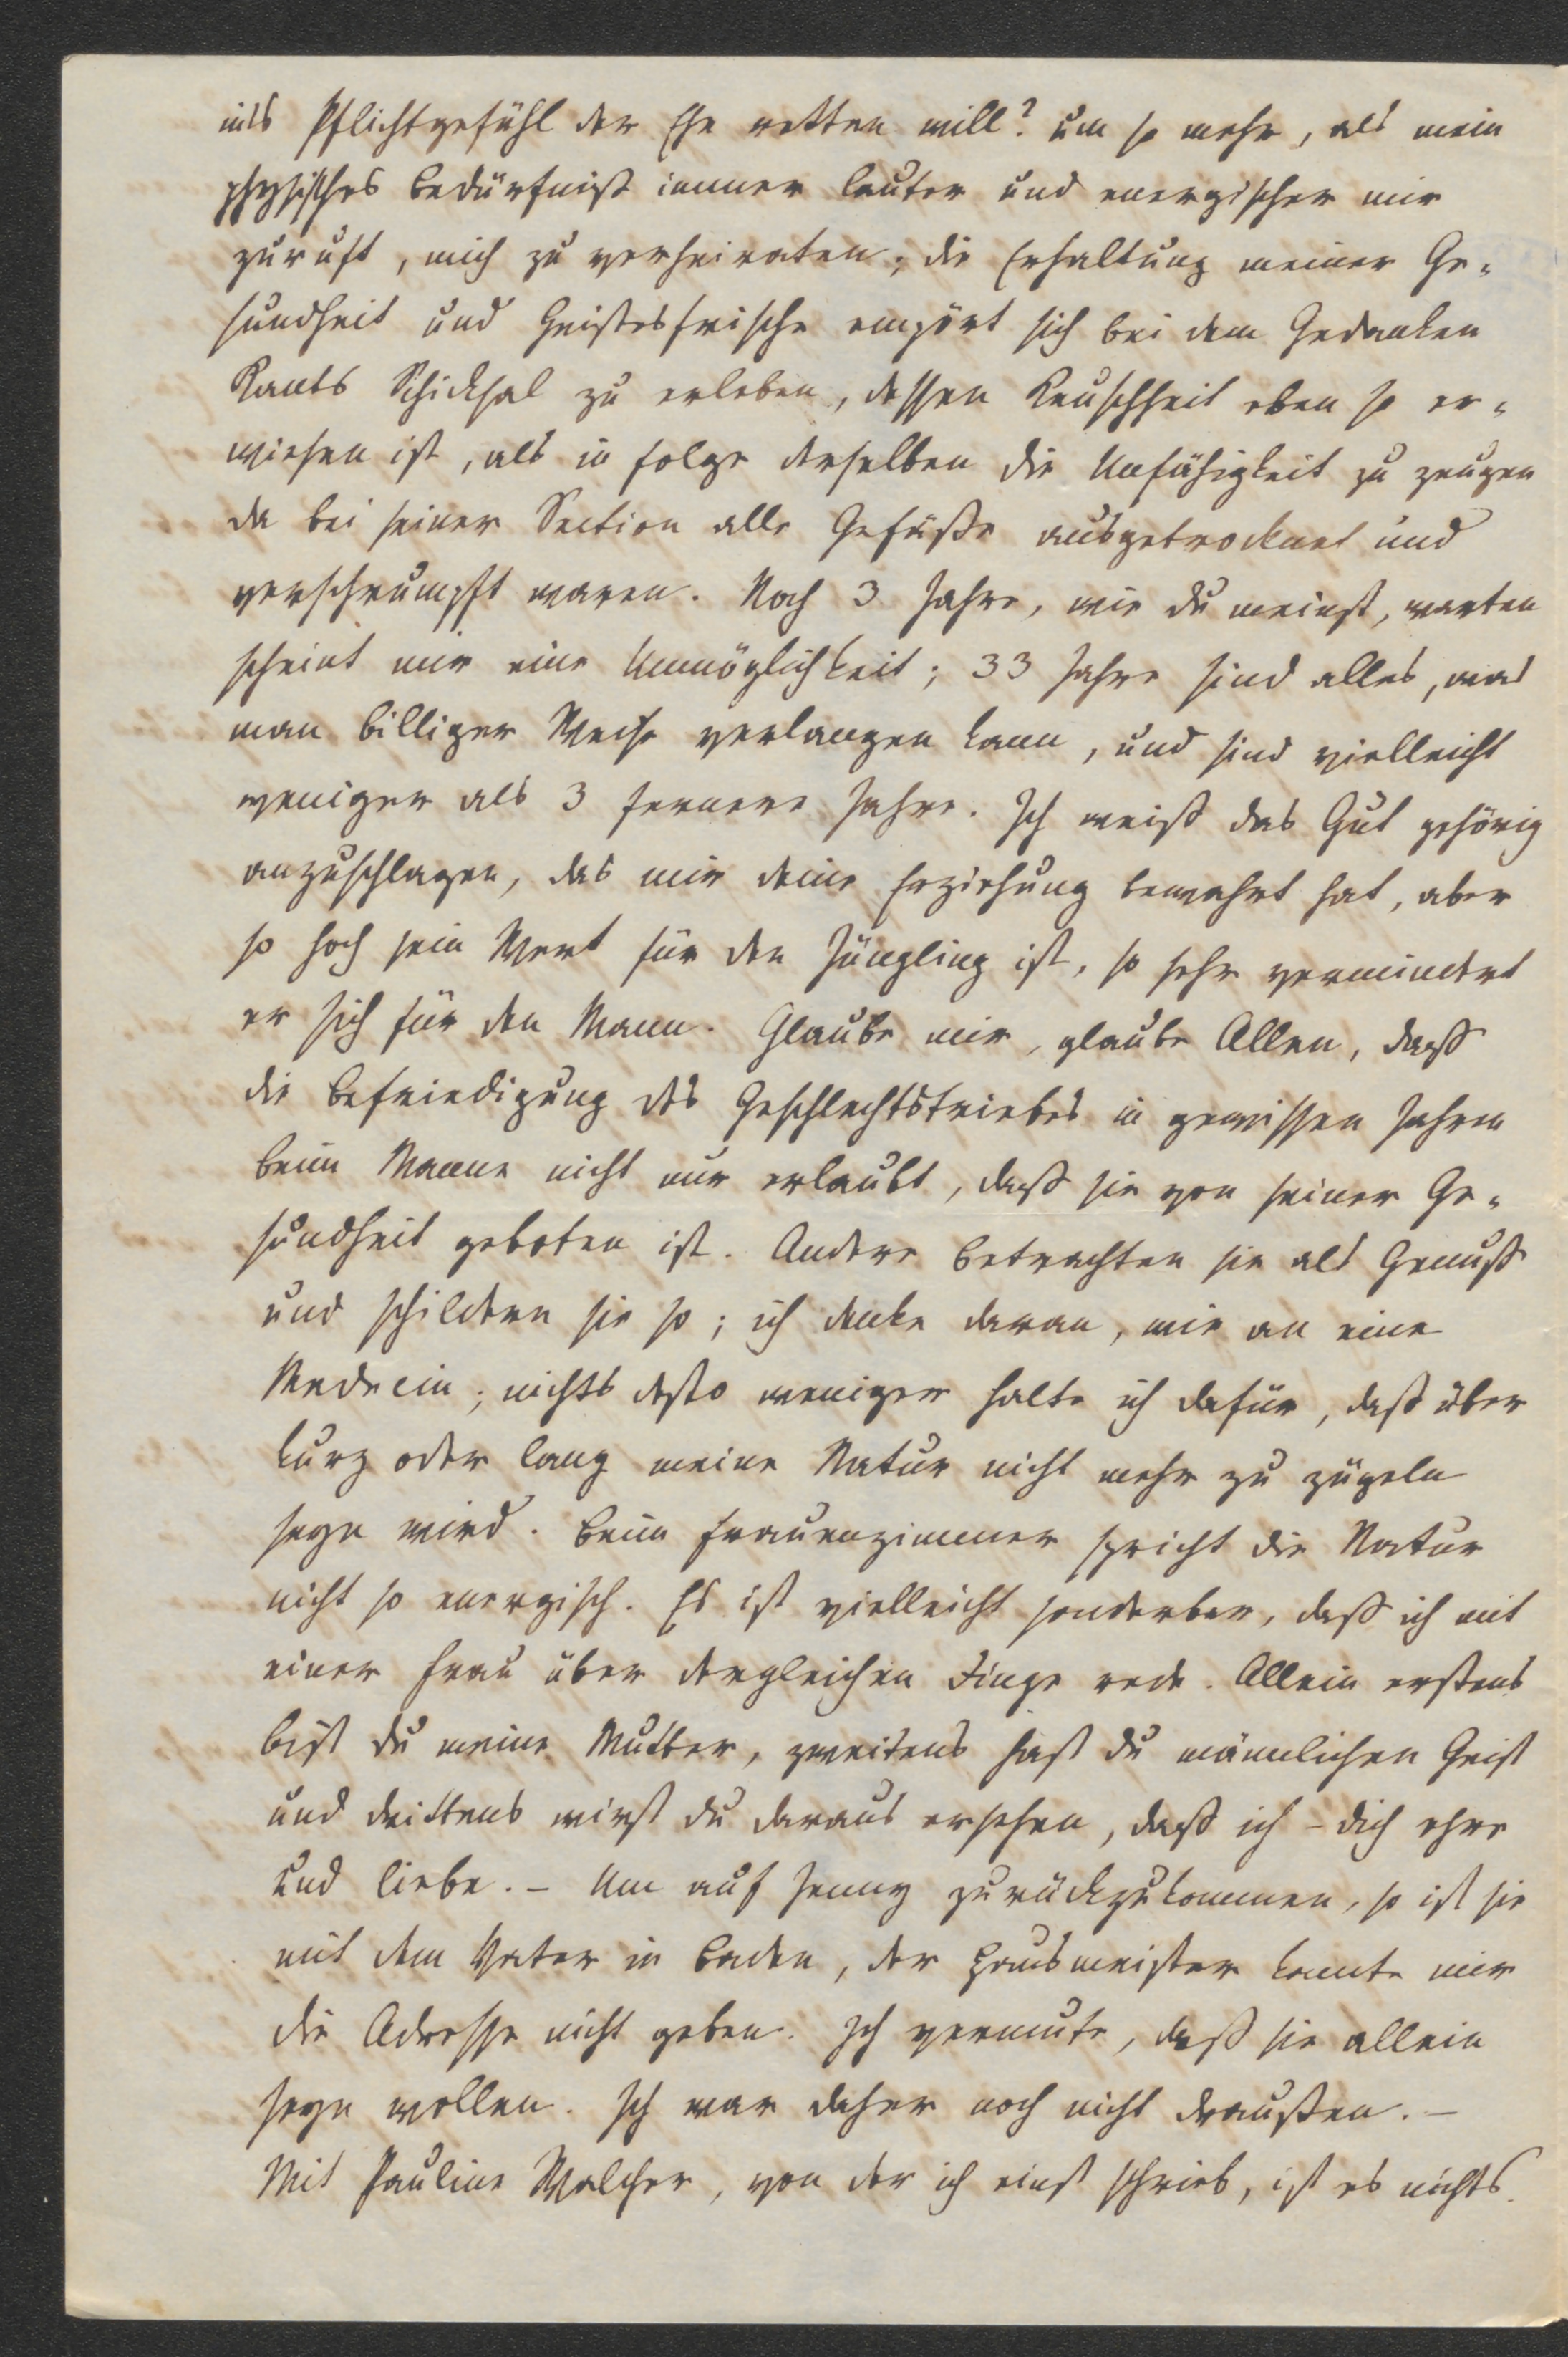 ins Pflichtgefühl der Ehe retten will? um so mehr, als mein
physisches Bedürfniß immer lauter und energischer mir
zuruft, mich zu verheiraten; die Erhaltung meiner Ge-
sundheit und Geistesfrische empört sich bei dem Gedanken
Kants Schicksal zu erleben, dessen Keuschheit eben so er-
wiesen ist, als in Folge derselben die Unfähigkeit zu zeugen
da bei seiner Section alle Gefäße ausgetrocknet und
verschrumpft waren. Noch 3 Jahre, wie du meinst, warten
scheint mir eine Unmöglichkeit; 33 Jahre sind alles, was
man billiger Weise verlangen kann, und sind vielleicht
weniger als 3 fernere Jahre. Ich weiß das Gut gehörig
anzuschlagen, das mir deine Erziehung bewahrt hat, aber
so hoch sein Wert für den Jüngling ist, so sehr vermindert
er sich für den Mann. Glaube mir, glaube Allen, daß
die Befriedigung des Geschlechtstriebes in gewissen Jahren
beim Manne nicht nur erlaubt, daß sie von seiner Ge-
sundheit geboten ist. Andere betrachten sie als Genuß
und schildern sie so; ich denke daran, wie an eine
Medecin; nichts desto weniger halte ich dafür, daß über
kurz oder lang meine Natur nicht mehr zu zügeln
seyn wird. Beim Frauenzimmer spricht die Natur
nicht so energisch. Es ist vielleicht sonderbar, daß ich mit
einer Frau über dergleichen Dinge rede. Allein erstens
bist du meine Mutter, zweitens hast du männlichen Geist
und drittens wirst du daraus ersehen, daß ich – dich ehre
und liebe. – Um auf Jenny zurückzukommen, so ist sie
mit dem Vater in Baden, der Hausmeister konnte mir
die Adresse nicht geben. Ich vermute, daß sie allein
seyn wollen. Ich war daher noch nicht draußen. –
Mit Pauline Walcher, von der ich einst schrieb, ist es nichts.